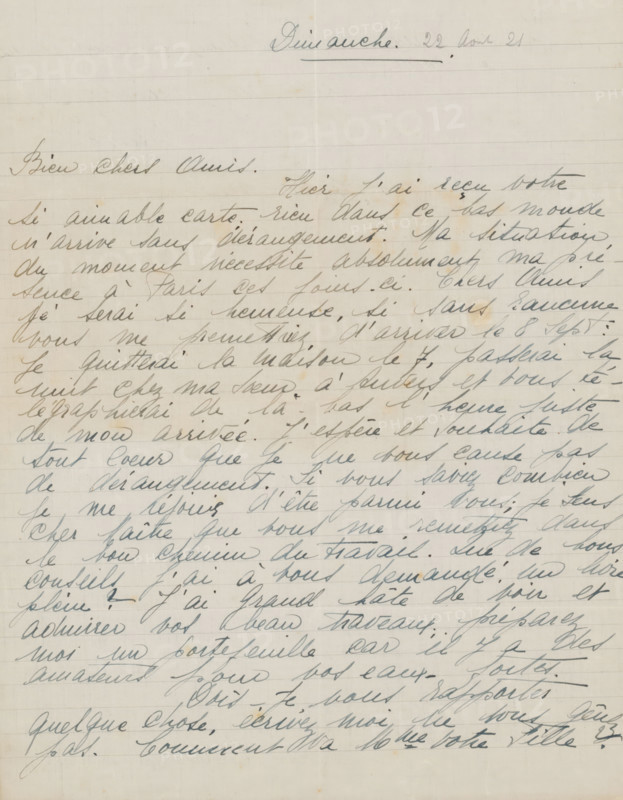 Dimanche. 22 Août 21
Bien chers Amis.
Hier j'ai reçu votre
si aimable carte. rien dans ce bas monde
n'arrive sans dérangement. Ma situation
du moment nécessite absolument ma pré-
sence à Paris ces jours-ci. Chers Amis
je serai si heureuse, si sans rancune
vous me permettiez d'arriver le 8 Sept:
je quitterai la maison le 7, passerai la
nuit chez ma sœur à Anvers et vous té-
légraphierai de là-bas l'heure juste
de mon arrivée. J'espère et souhaite de
tout cœur que je ne vous cause pas
de dérangement. Si vous saviez combien
je me réjouis d'être parmi vous; je sens
cher Maître que vous me remettrez dans
le bon chemin du travail. Que de bons
conseils j'ai à vous demander, un livre
plein? J'ai grand hâte de voir et
admirer vos beau traveaux, préparez
moi un portefeuille car il y a des
amateurs pour vos eaux-fortes.
Dois-je vous rapporter
quelque chose, écrivez moi, ne vous gênez
pas. Comment va Mme votre Fille?
PHOTO12
PHOTO12